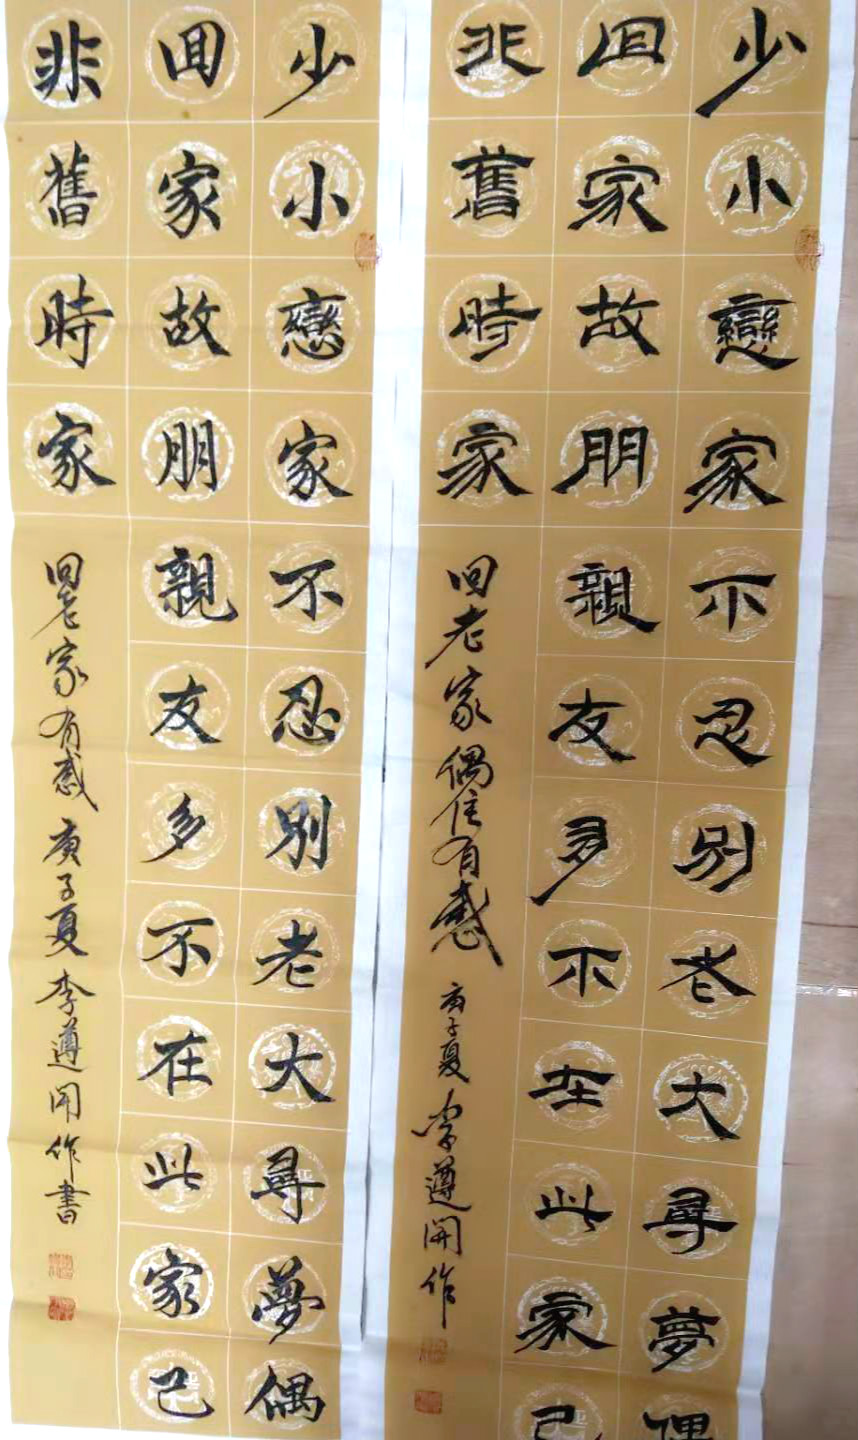 少小戀家不忍别老大尋夢偶
回家故朋親友多不在此家已
非舊時家
回老家偶住有感 庚子夏 李遵開作
少小戀家不忍别老大尋夢偶
回家故朋親友多不在此家已
非舊時家
回老家有感 庚子夏 李遵開作書